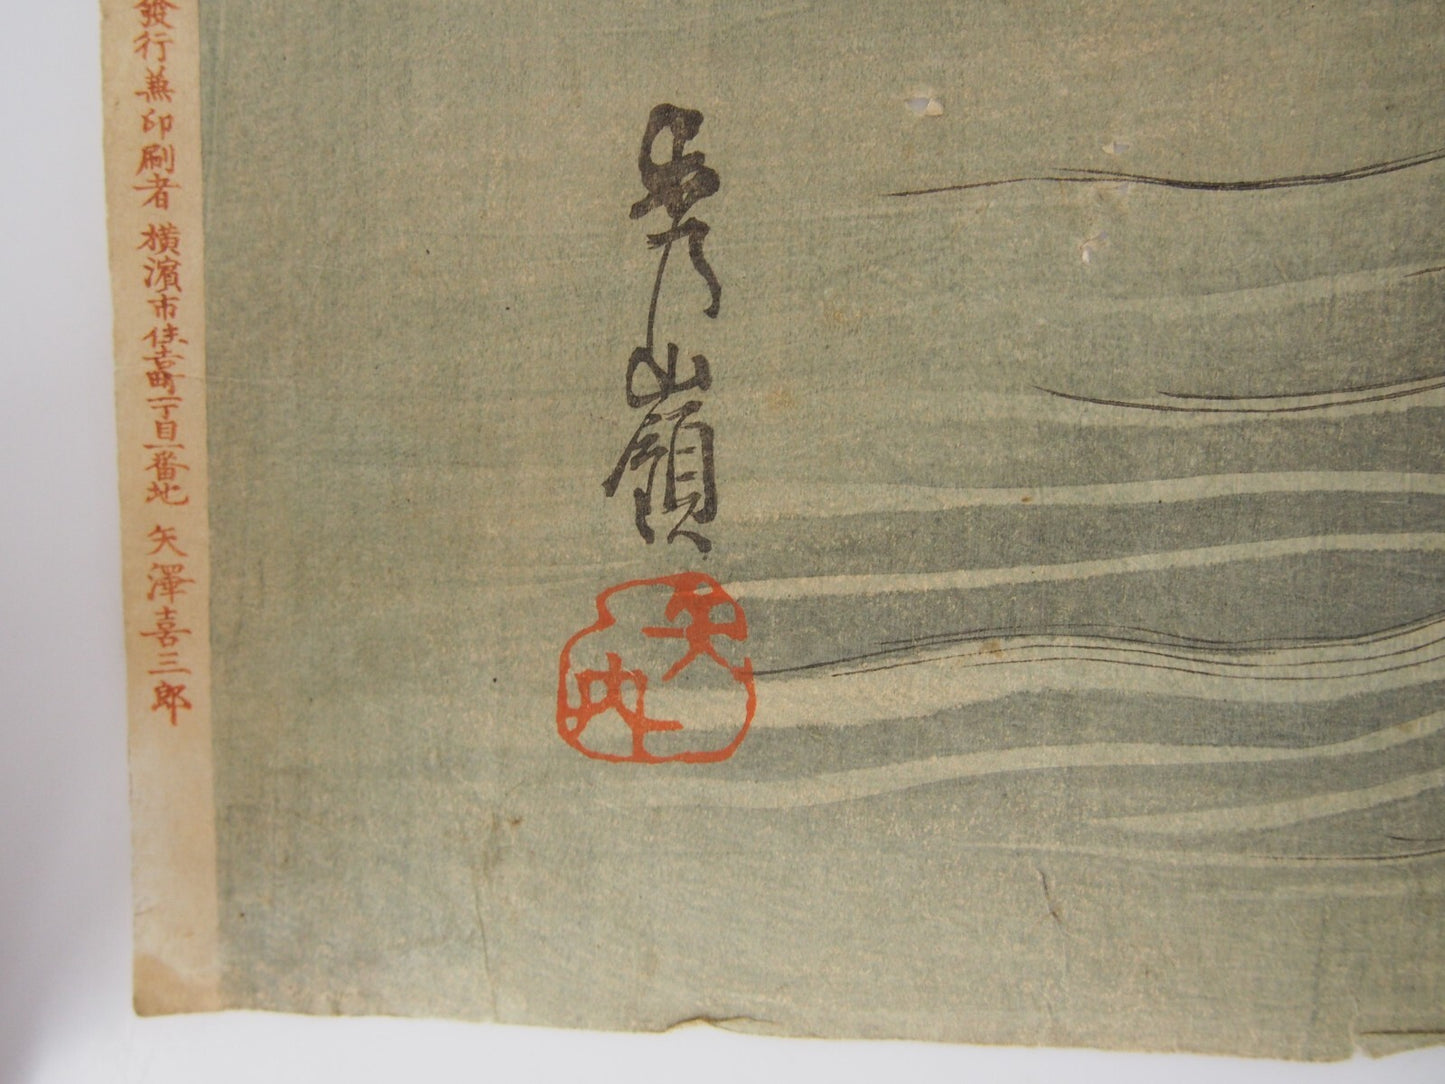 發行兼印刷者 横濱市住吉町一丁目一番地 矢澤喜三郎
秀山嶺
矢内